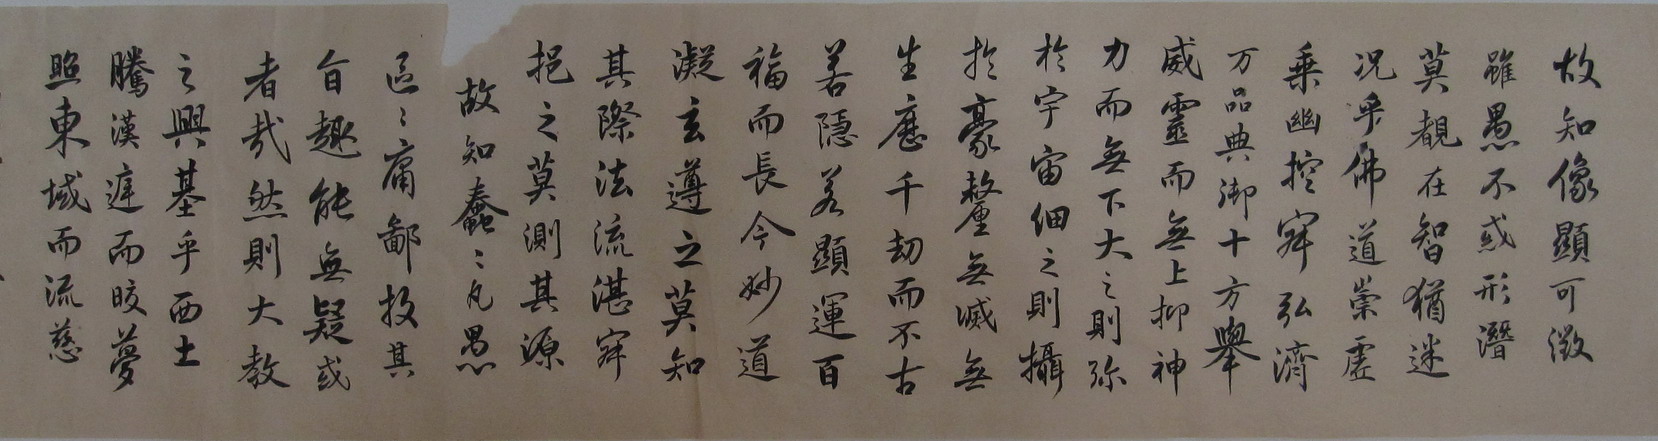 故知像顯可徵
雖愚不惑形潛
莫覩在智猶迷
况乎佛道崇虛
乗幽控寂弘濟
万品典御十方舉
威靈而無上抑神
力而無下大之則弥
於宇宙細之則攝
於豪釐無滅無
生歷千劫而不古
若隱若顯運百
福而長今妙道
凝玄遵之莫知
其際法流湛寂
挹之莫測其源
故知蠢〻凡愚
區〻庸鄙投其
旨趣能無疑惑
者哉然則大教
之興基乎西土
騰漢庭而皎夢
照東域而流慈